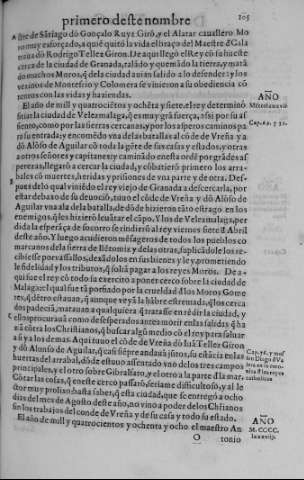 primero deste nombre 105
stre de Sãtiago dõ Gonçalo Ruyz Girõ, y el Alatar cauallero Mo
ro muy esforçado, a quẽ quitò la vida el braço del Maestre d Gala
traua dõ Rodrigo Tellez Giron. De aqui llegò el Rey cõ su hueste
cerca de la ciudad de Granada, talãdo y quemãdo la tierra, y matã
do muchos Moros, q̃ de la ciudad auian salido a lo defender: y los
vezinos de Montefrio y Colomera se vinieron a su obediencia cõ
tentos con las vidas y haziendas.
El año de mil y quatrociẽtos y ochẽta y siete, el rey determinò
sitiar la ciudad de Velezmalaga, q̃ es muy grã fuerça, assi por su as
siento, como por las sierras cercanas, y por los asperos caminos pa
ra su entrada: y encomẽdò vna de las batallas al cõde de Vreña y a
dõ Alõso de Aguilar cõ toda la gẽte de sus casas y estados, y otras
a otros señores y capitanes: y caminãdo en esta ordẽ por grãdes as
perezas, llegarõ a cercar la ciudad, y cõbatierõ primero los arra-
bales cõ muertes, heridas y prisiones de vna parte y de otra. Des
pues de lo qual viniẽdo el rey viejo de Granada a descercarla, por
estar debaxo de su deuociõ, tuuo el cõde de Vreña y dõ Alõso de
Aguilar vna ala de la batalla, de dõde hizieron tãto estrago en los
enemigos, q̃ les hizierõ leuãtar el cãpo. Y los de Velezmalaga, per
dida la esperãça de socorro se rindierõ al rey viernes siete d Abril
deste año. Y luego acudieron mẽsageros de todos los pueblos co
marcanos de la sierra de Bẽtomiz, y de las otras, suplicãdole los re-
cibiesse por vassallos, dexãdolos en sus bienes y le y, prometiendo
le fidelidad y los tributos, q̃ solià pagar a los reyes Moros. De a-
qui fue el rey cõ todo su exercito a poner cerco sobre la ciudad de
Malaga: el qual fue tã porfiado por la crueldad d los Moros Gome
res, q̃ dẽtro estauan, q̃ aunque veyà la hãbre estremada, q̃ los cerca
dos padecià, matauan a qualquiera, q̃ tratasse en rẽdir la ciudad, y
ello procurauà como desesperados antes morir en las salidas q̃ ha
zià cõtra los Christianos, q̃ buscar algũ medio cõ el rey para saluar
a si y a los demas. Aqui tuuo el cõde de Vreña dõ Iuã Tellez Giron
y dõ Alonso de Aguilar, q̃ casi siẽpre andauà jũtos, su estãcia en las
huertas del arrabal, dõ de estuuo assentado vno de los tres campos
principales, y el otro sobre Gibralfaro, y el otro a la parte d la mar.
Cõtar las cosas, q̃ en este cerco passarõ, seria me difficultoso, y al le
ctor muy prolixo: hasta saber, q̃ esta ciudad, que se entregò a ocho
dias del mes de Agosto deste año, no vino a poder de los Chfianos
sin los trabajos del conde de Vreña y de su casa y todo su estado.
El año de mil y quatrocientos y ochenta y ocho el maestro An
O tonio
AÑO
Cap. 69. y 52.
Cap. 76. y
AÑO
M. CCCC.